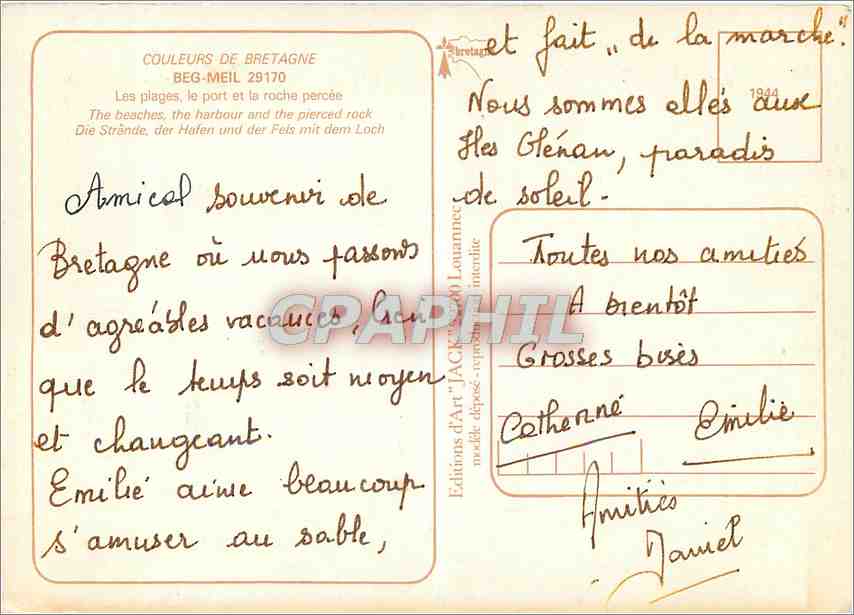 COULEURS DE BRETAGNE
BEG-MEIL 29170
Les plages, le port et la roche percée
The beaches, the harbour and the pierced rock
Die Strände, der Hafen und der Fels mit dem Loch
Amical souvenir de
Bretagne où nous passons
d'agréables vacances, bien
que le temps soit moyen
et changeant.
Emilie aime beaucoup
s'amuser au sable,
bretagne
et fait „ de la marche."
1944
Nous sommes allés aux
Iles Glénan, paradis
de soleil -
Editions d'Art "JACK" Louannec
modèle déposé - reproduction interdite
Toutes nos amitiés
A bientôt
Grosses bises
Catherine
Emilie
Amitiés
Daniel
CPAPHIL